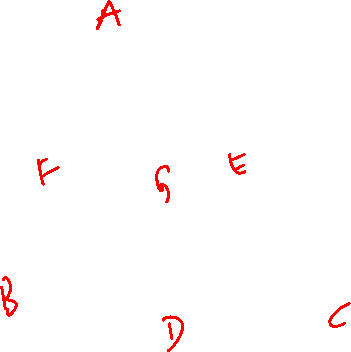 A
F G E
B D C